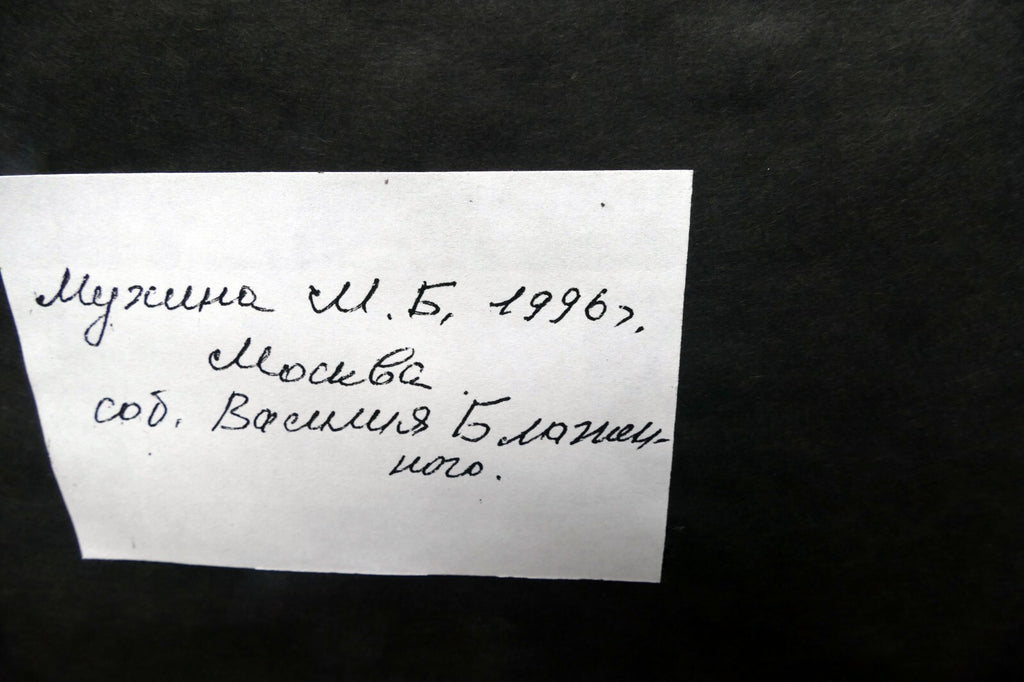 Мухина М. Б, 1996 г.
Москва
соб. Василия Блажен-
ного.